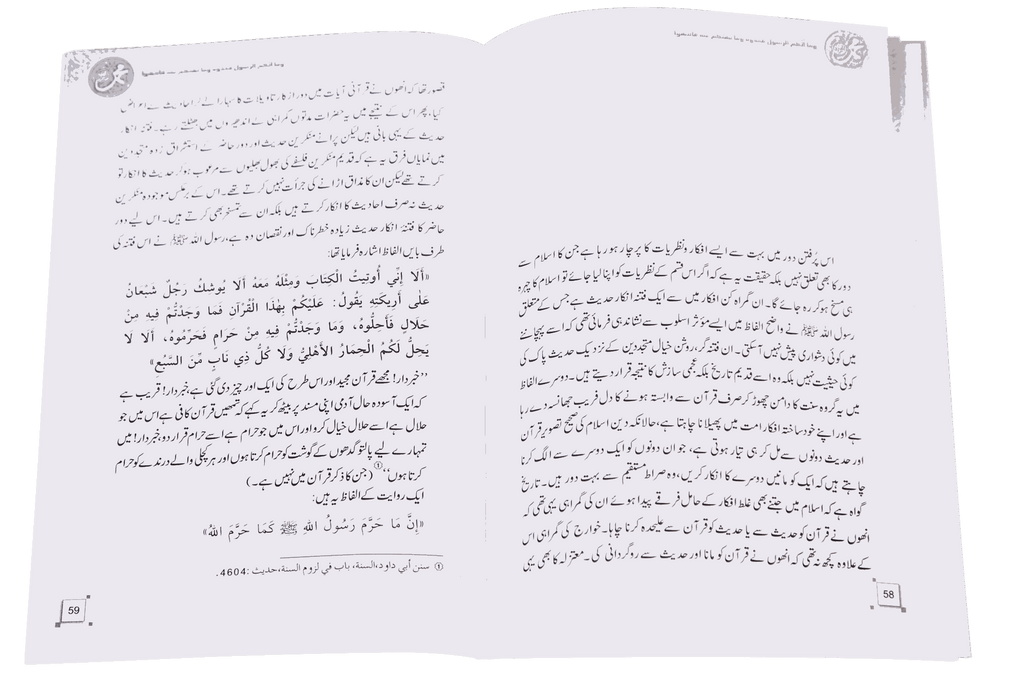 وما آتكم الرسول فخذوه وما نهكم عنه فانتهوا
اس پُرفتن دور میں بہت سے ایسے افکار ونظریات کا پرچار ہو رہا ہے جن کا اسلام سے
دور کا بھی تعلق نہیں بلکہ حقیقت یہ ہے کہ اگر اس قسم کے نظریات کو اپنا لیا جائے تو اسلام کا چہرہ
ہی مسخ ہو کر رہ جائے گا۔ ان گمراہ کن افکار میں سے ایک فتنہ انکار حدیث ہے جس کے متعلق
رسول اللہ ﷺ نے واضح الفاظ میں ایسے مؤثر اسلوب سے نشاندہی فرمائی تھی کہ اسے پہچاننے
میں کوئی دشواری پیش نہیں آسکتی۔ ان فتنہ گر، روشن خیال متجددین کے نزدیک حدیث پاک کی
کوئی حیثیت نہیں بلکہ وہ اسے قدیم تاریخ بلکہ عجمی سازش کا نتیجہ قرار دیتے ہیں۔ دوسرے الفاظ
میں یہ گروہ سنت کا دامن چھوڑ کر صرف قرآن سے وابستہ ہونے کا دل فریب جھانسہ دے رہا
ہے اور اپنے خود ساختہ افکار امت میں پھیلانا چاہتا ہے، حالانکہ دین اسلام کی صحیح تصویر قرآن
اور حدیث دونوں سے مل کر ہی تیار ہوتی ہے، جو ان دونوں کو ایک دوسرے سے الگ کرنا
چاہتے ہیں کہ ایک کو مانیں دوسرے کا انکار کریں، وہ صراط مستقیم سے بہت دور ہیں۔ تاریخ
گواہ ہے کہ اسلام میں جتنے بھی غلط افکار کے حامل فرقے پیدا ہوئے ان کی گمراہی یہی تھی کہ
انھوں نے قرآن کو حدیث سے یا حدیث کو قرآن سے علیحدہ کرنا چاہا۔ خوارج کی گمراہی اس
کے علاوہ کچھ نہ تھی کہ انھوں نے قرآن کو مانا اور حدیث سے روگردانی کی۔ معتزلہ کا بھی یہی
58
وما آتكم الرسول فخذوه وما نهكم عنه فانتهوا
قصور تھا کہ انھوں نے قرآنی آیات میں دور از کار تاویلات کا سہارا لے کر احادیث سے اعراض
کیا، پھر اس کے نتیجے میں یہ حضرات مدتوں گمراہی کے اندھیروں میں بھٹکتے رہے۔ فتنہ انکار
حدیث کے یہی بانی ہیں لیکن پرانے منکرین حدیث اور دور حاضر کے استشراق زدہ متجددین
میں نمایاں فرق یہ ہے کہ قدیم منکرین فلسفے کی بھول بھلیوں سے مرعوب ہو کر حدیث کا انکار تو
کرتے تھے لیکن ان کا مذاق اڑانے کی جرأت نہیں کرتے تھے۔ اس کے برعکس موجودہ منکرین
حدیث نہ صرف احادیث کا انکار کرتے ہیں بلکہ ان سے تمسخر بھی کرتے ہیں۔ اس لیے دور
حاضر کا فتنۂ انکار حدیث زیادہ خطرناک اور نقصان دہ ہے، رسول اللہ ﷺ نے اس فتنہ کی
طرف بایں الفاظ اشارہ فرمایا تھا:
«أَلَا إِنِّي أُوتِيتُ الْكِتَابَ وَمِثْلَهُ مَعَهُ أَلَا يُوشِكُ رَجُلٌ شَبْعَانُ
عَلَى أَرِيكَتِهِ يَقُولُ: عَلَيْكُمْ بِهٰذَا الْقُرْآنِ فَمَا وَجَدْتُمْ فِيهِ مِنْ
حَلَالٍ فَأَحِلُّوهُ، وَمَا وَجَدْتُمْ فِيهِ مِنْ حَرَامٍ فَحَرِّمُوهُ، أَلَا لَا
يَحِلُّ لَكُمُ الْحِمَارُ الْأَهْلِيُّ وَلَا كُلُّ ذِي نَابٍ مِّنَ السَّبُعِ»
’’خبردار! مجھے قرآن مجید اور اس طرح کی ایک اور چیز دی گئی ہے، خبردار! قریب ہے
کہ ایک آسودہ حال آدمی اپنی مسند پر بیٹھ کر یہ کہے کہ تمھیں قرآن کافی ہے اس میں جو
حلال ہے اسے حلال خیال کرو اور اس میں جو حرام ہے اسے حرام قرار دو، خبردار! میں
تمہارے لیے پالتو گدھوں کے گوشت کو حرام کرتا ہوں اور ہر کچلی والے درندے کو حرام
کرتا ہوں‘‘ ① (جن کا ذکر قرآن میں نہیں ہے۔)
ایک روایت کے الفاظ یہ ہیں:
«إِنَّ مَا حَرَّمَ رَسُولُ اللهِ ﷺ كَمَا حَرَّمَ اللهُ»
① سنن أبي داود، السنة، باب في لزوم السنة، حديث: 4604.
59